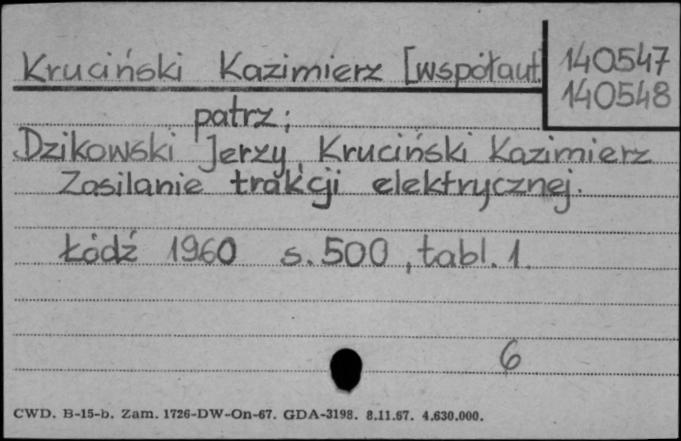 Kruciński Kazimierz [współaut
140547
140548
patrz;
Dzikowski Jerzy, Kruciński Kazimierz
Zasilanie trakcji elektrycznej.
Łódź 1960 s. 500, tabl. 1.
6
CWD. B-15-b. Zam. 1726-DW-On-67. GDA-3198. 8.11.67. 4.630.000.